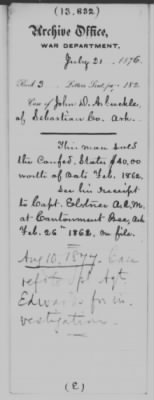 (13,832)
Archive Office,
WAR DEPARTMENT,
July 21, 1876.
Book 3 Letters Sent, p. 182
Case of John D. Arbuckle,
of Sebastian Co. Ark.
This man sold
the Confed. States $40.00
worth of Oats Feb. 1862.
See his receipt
to Capt. A.Q.M.
at Cantonment Bee, Ark
Feb. 26th 1862, on file.
Aug 10, 1877. Case
ref'd to Spl Agt
Edwards for in-
vestigation.
(E)